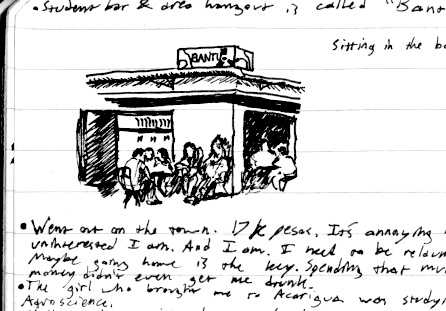 • Student bar & area hangout is called "Bant
Sitting in the ba
BANTU
• Went out on the town. 17 k pesos. It's annoying
uninterested I am. And I am. I need to be
Maybe going home is the key. Spending that mu
money didn't even get me drunk.
• The girl who brought me to Acarigua was study
Agroscience.